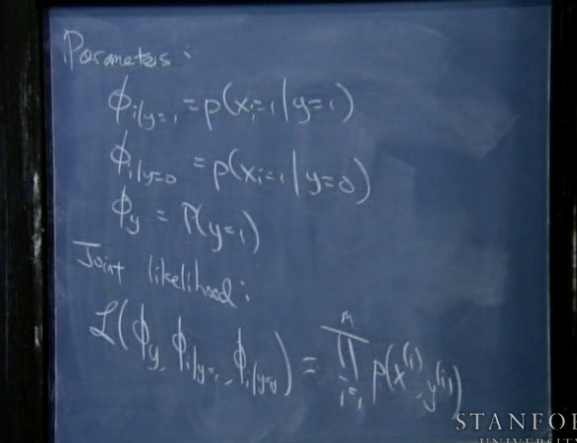 Parameters:
ϕ_{i|y=1} = p(x_i=1|y=1)
ϕ_{i|y=0} = p(x_i=1|y=0)
ϕ_y = P(y=1)
Joint likelihood:
ℒ(ϕ_y, ϕ_{i|y=1}, ϕ_{i|y=0}) = ∏_{i=1}^{m} p(x^{(i)}, y^{(i)})
STANFOR
UNIVERSITY